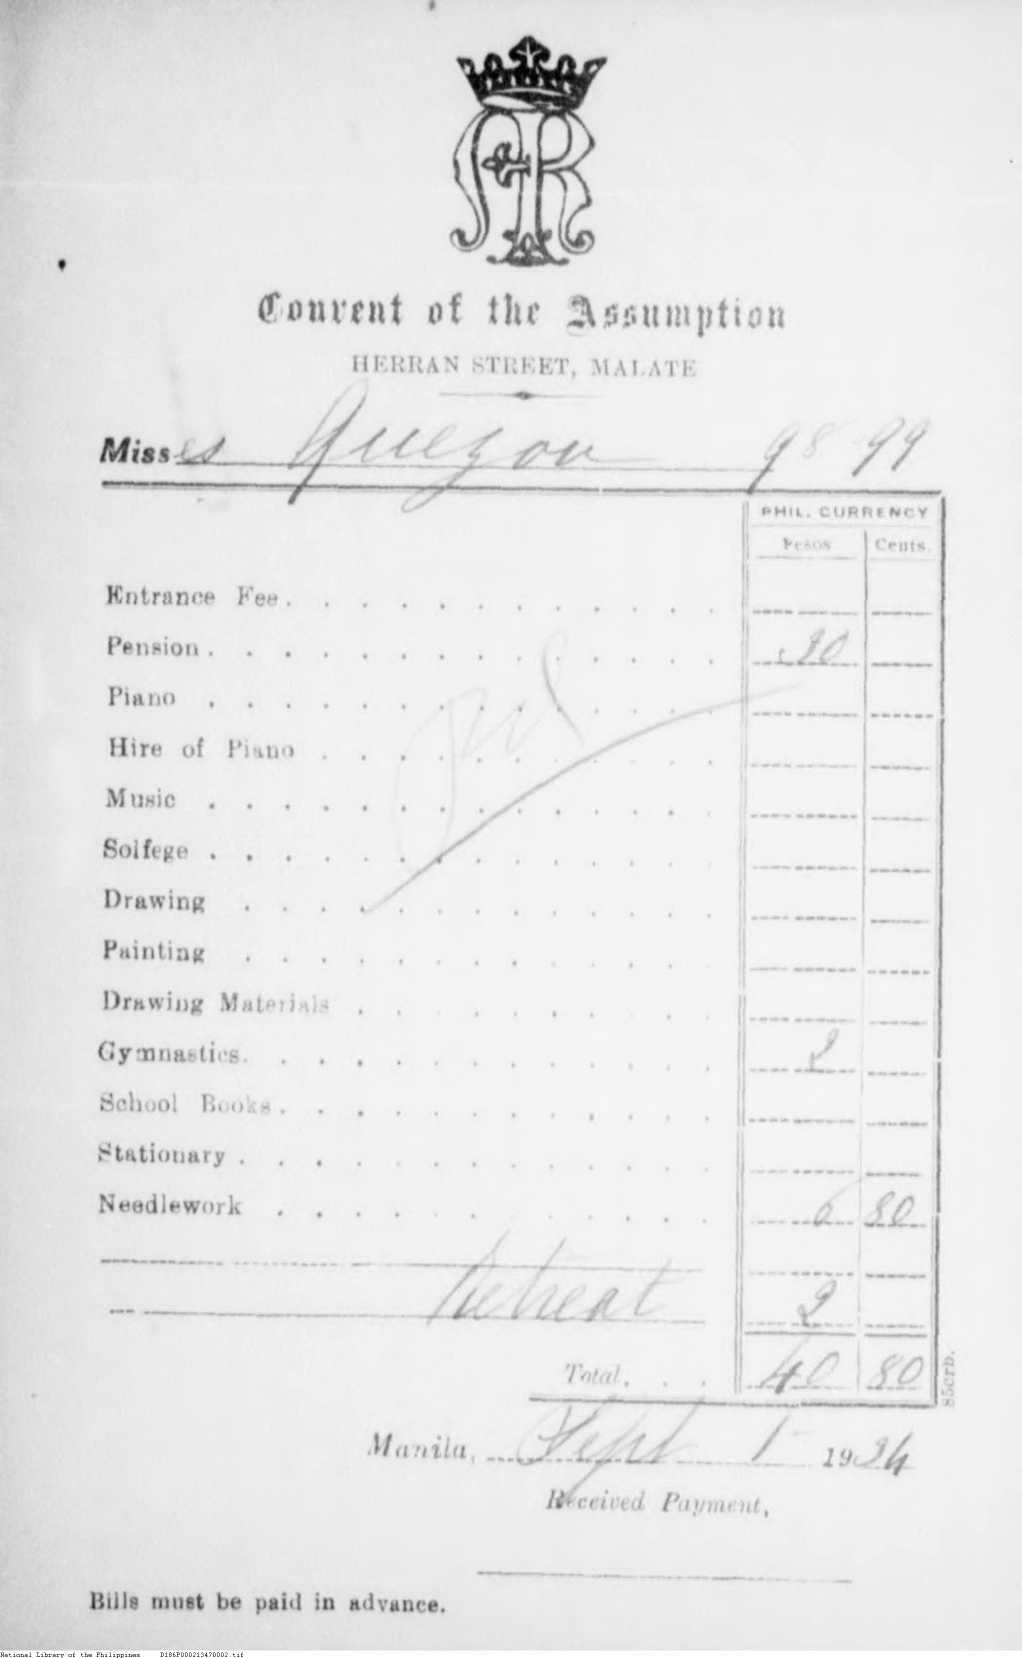 AR
Convent of the Assumption
HERRAN STREET, MALATE
Misses Quezon 98 99
PHIL. CURRENCY
Pesos Cents.
Entrance Fee. . . . . . . . . . . .
Pension. . . . . . . . . . . . . . 30
Piano . . . . . . . . . . . . . .
Hire of Piano . . . . . . . . . . .
Music . . . . . . . . . . . . . .
Solfege . . . . . . . . . . . . . .
Drawing . . . . . . . . . . . . .
Painting . . . . . . . . . . . . .
Drawing Materials . . . . . . . . . .
Gymnastics. . . . . . . . . . . . . 2
School Books. . . . . . . . . . . .
Stationary . . . . . . . . . . . . .
Needlework . . . . . . . . . . . . 6 80
Retreat 2
Total. . . . 40 80
85crb.
Manila, Sept 1 1934
Received Payment,
Bills must be paid in advance.
National Library of the Philippines D186P000213470002.tif